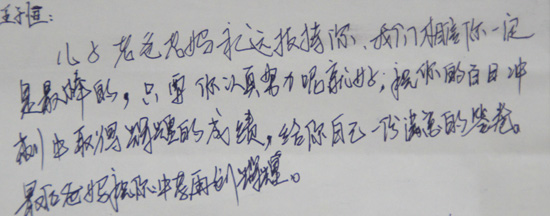 王子恒：
儿子老爸老妈永远扶持你、我们相信你一定
是最棒的，只要你认真努力呢就好；祝你的百日冲
刺中取得辉煌的成绩，给你自己一份满意的答卷。
最后爸妈祝你中考再创辉煌。